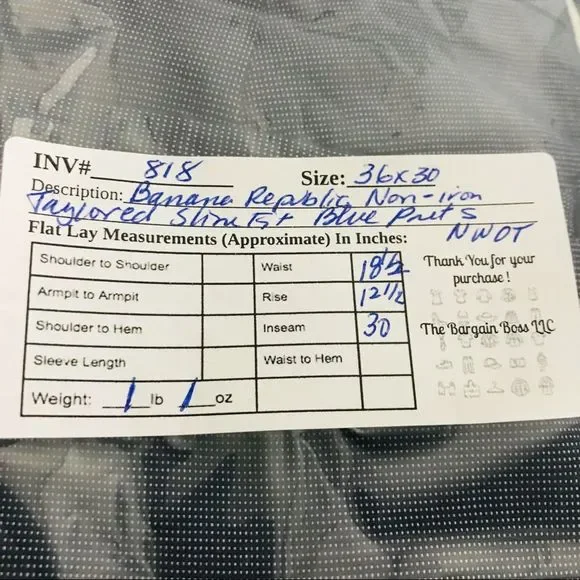 INV# 818 Size: 36x30
Description: Banana Republic Non-iron
Taylored Slim Fit Blue Pnts
NWOT
Flat Lay Measurements (Approximate) In Inches:
Shoulder to Shoulder Waist 18 1/2
Armpit to Armpit Rise 12 1/2
Shoulder to Hem Inseam 30
Sleeve Length Waist to Hem
Weight: 1 lb 1 oz
Thank You for your
purchase!
The Bargain Boss LLC